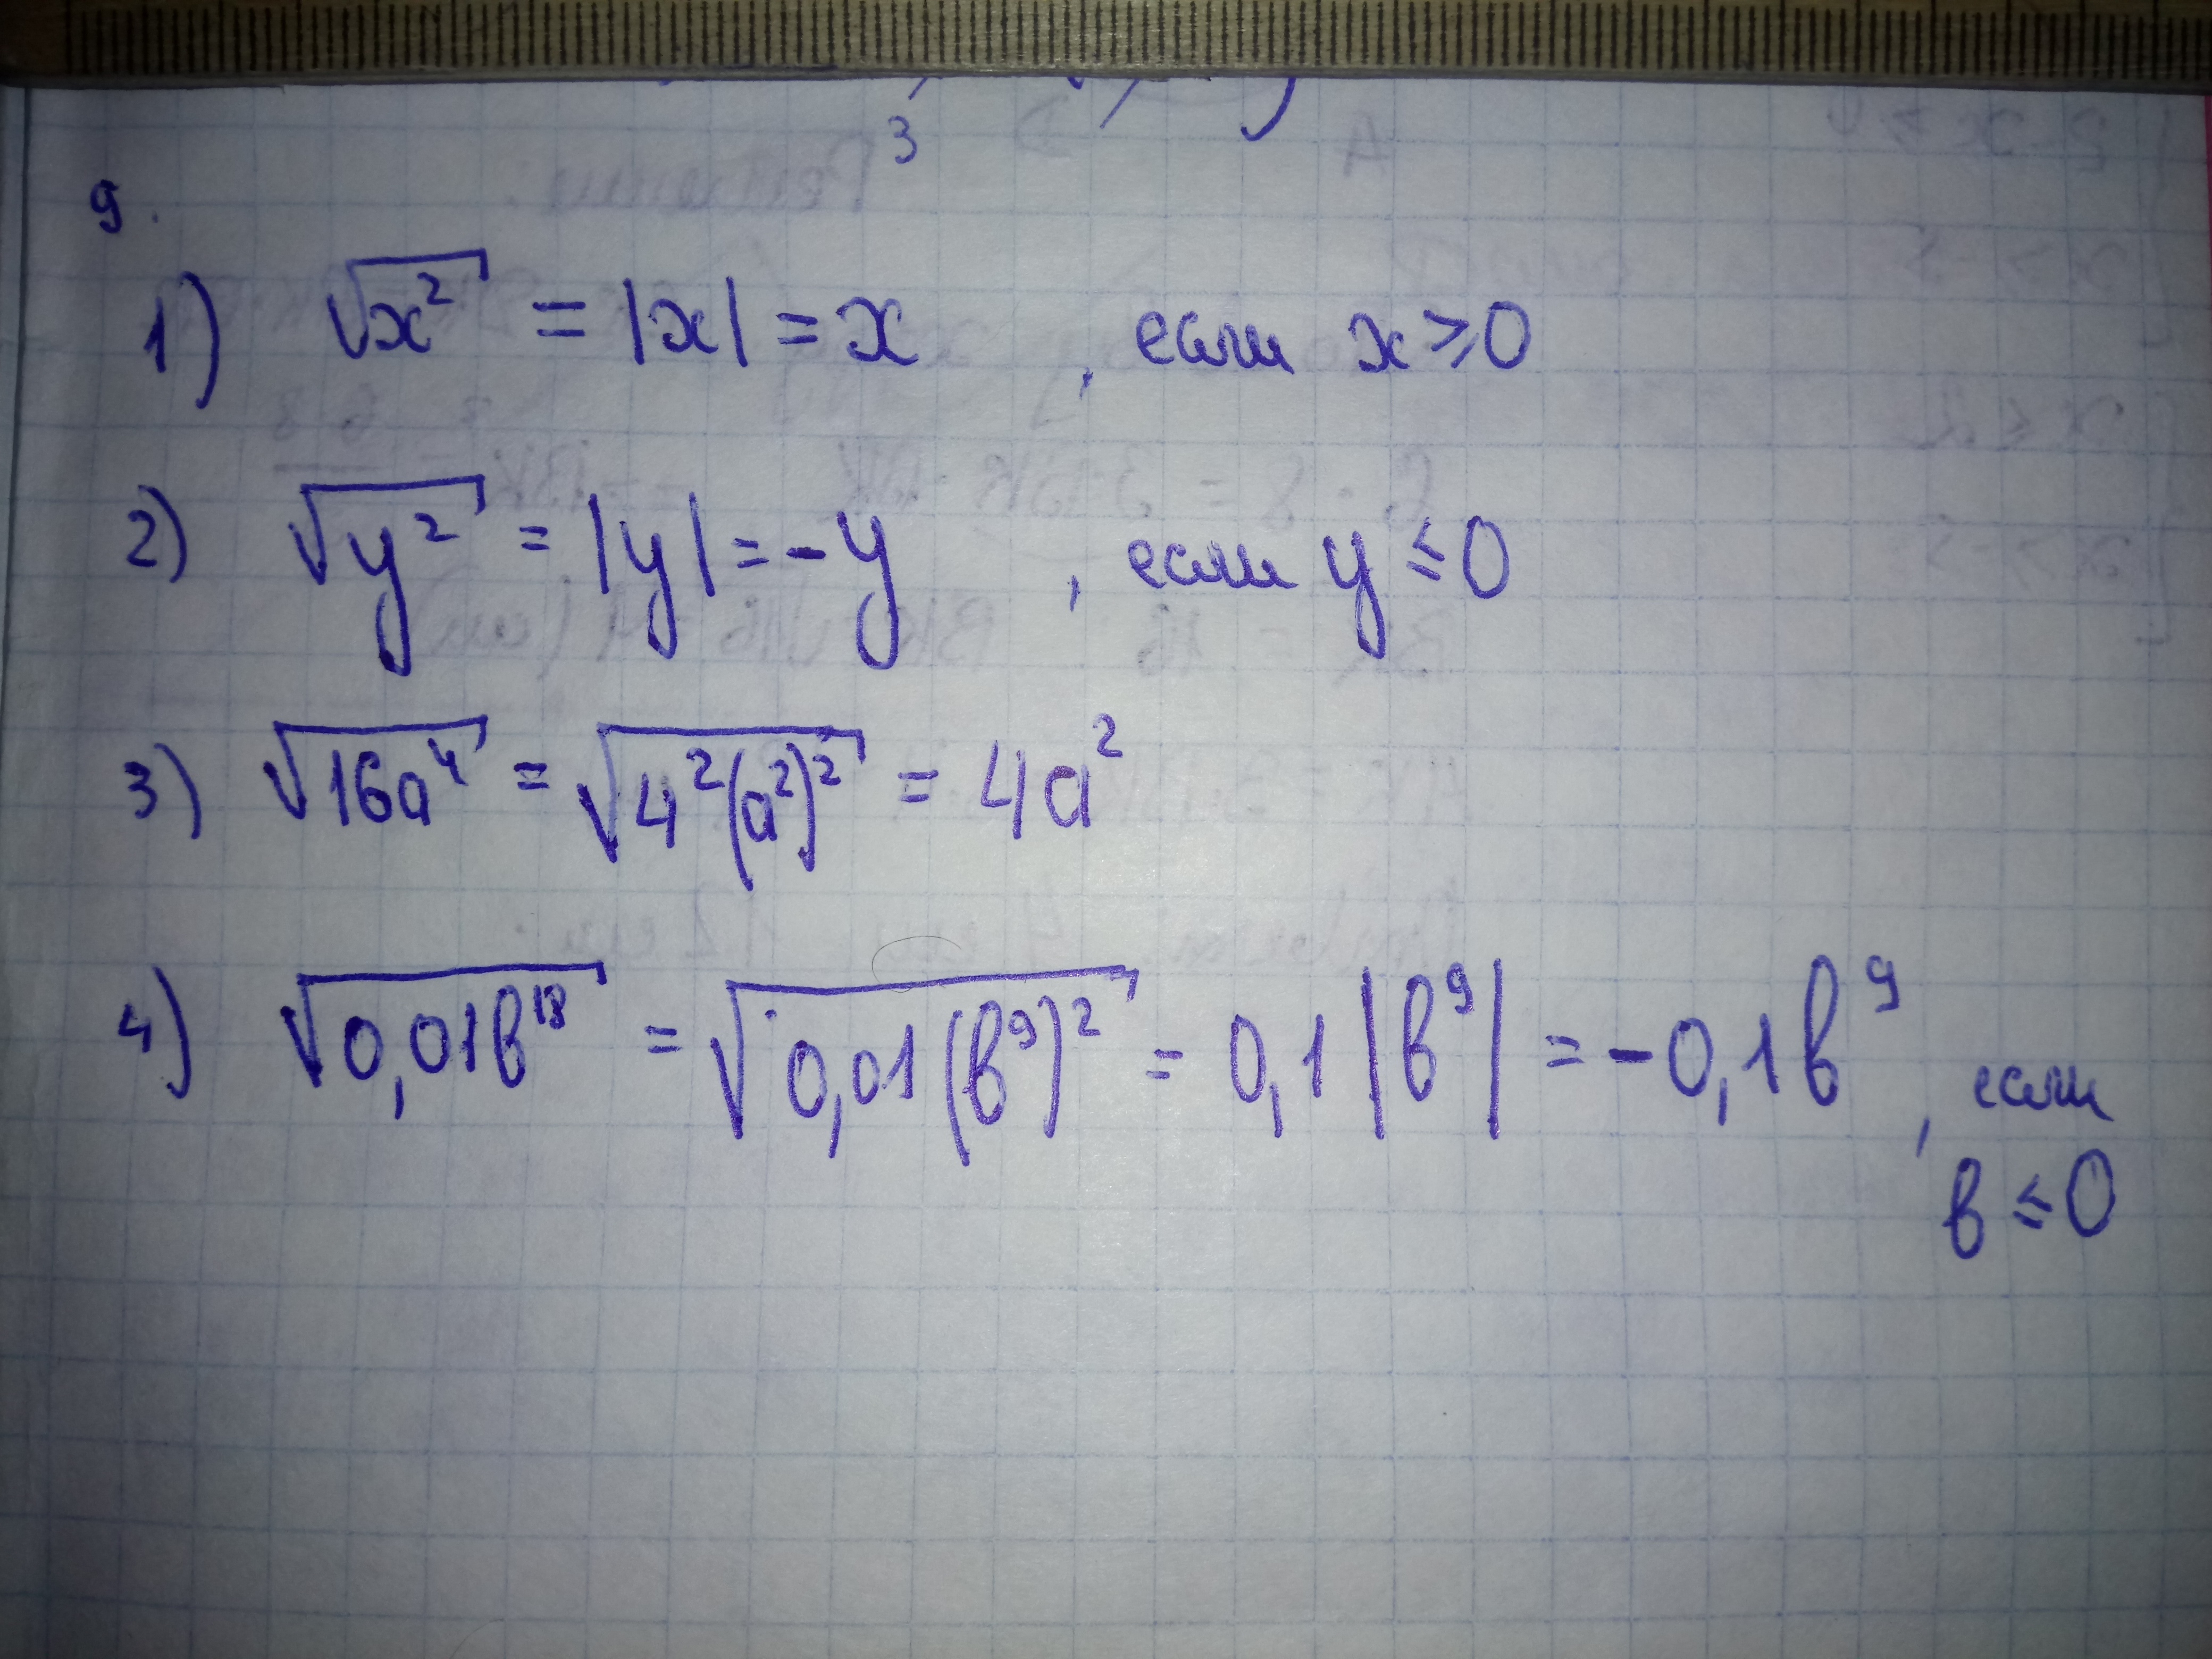 3
9.
1) √x² = |x| = x , если x ≥ 0
2) √y² = |y| = -y , если y ≤ 0
3) √16a⁴ = √4²(a²)² = 4a²
4) √0,01b¹⁸ = √0,01(b⁹)² = 0,1|b⁹| = -0,1b⁹ , если
b ≤ 0